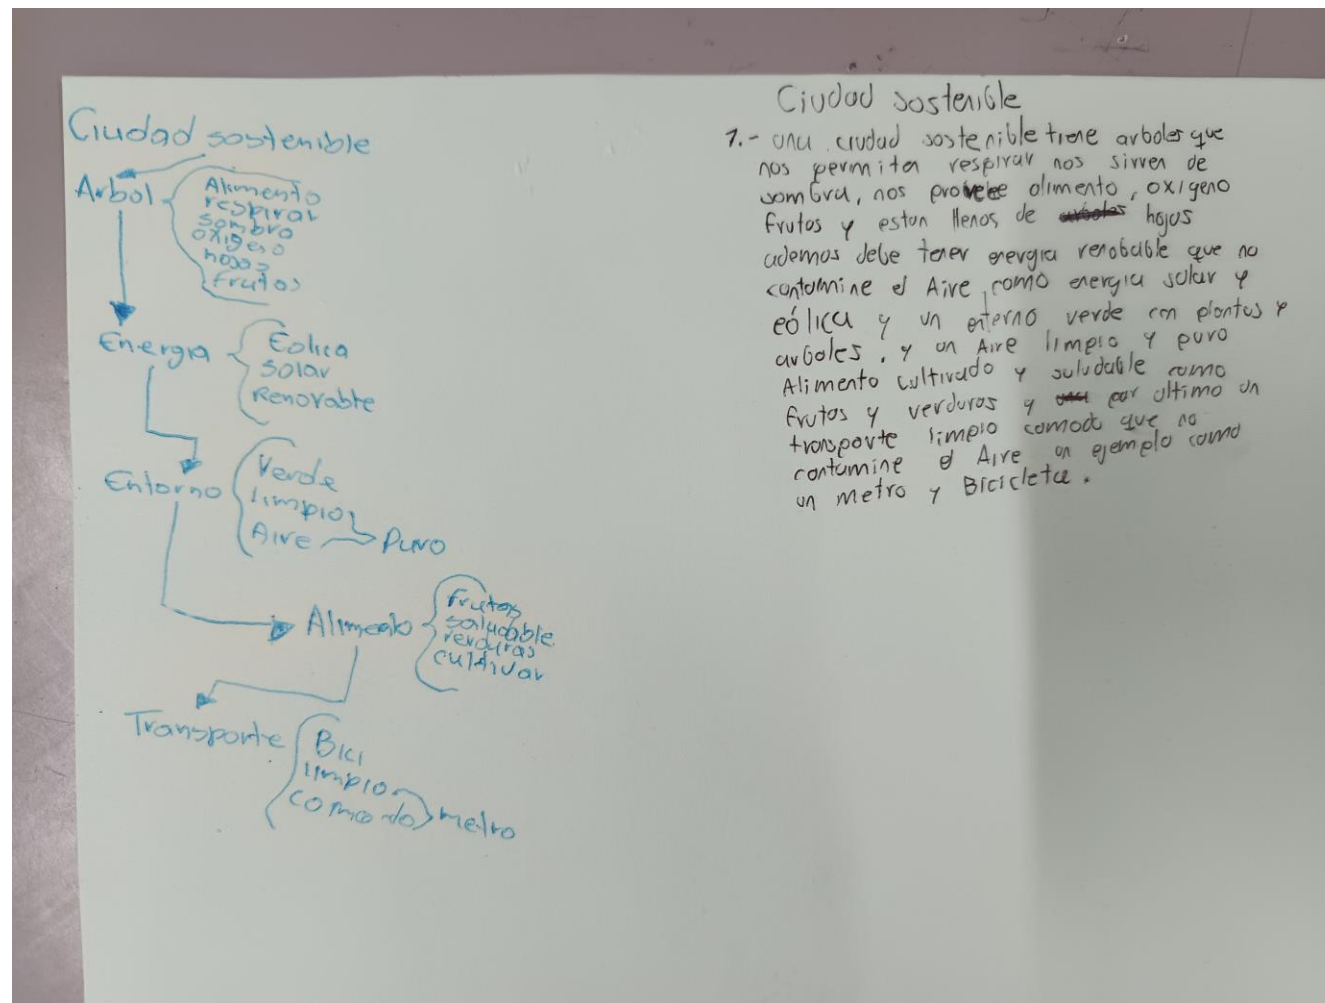 Ciudad sostenible
Arbol
Alimento
respirar
sombra
oxigeno
hojas
frutos
Energia
Eolica
solar
Renovable
Entorno
Verde
limpio
Aire
Puro
Alimento
frutas
saludable
verduras
cultivar
Transporte
Bici
limpio
comodo
metro
Ciudad sostenible
1.- una ciudad sostenible tiene arboles que
nos permiten respirar nos sirven de
sombra, nos provee alimento, oxigeno
frutos y estan llenos de hojas
ademas debe tener energia renobable que no
contamine el Aire, como energia solar y
eólica y un enterno verde con plantas y
arboles, y un Aire limpio y puro
Alimento cultivado y saludable como
frutas y verduras y por ultimo un
transporte limpio comodo que no
contamine el Aire un ejemplo como
un metro y Bicicleta.